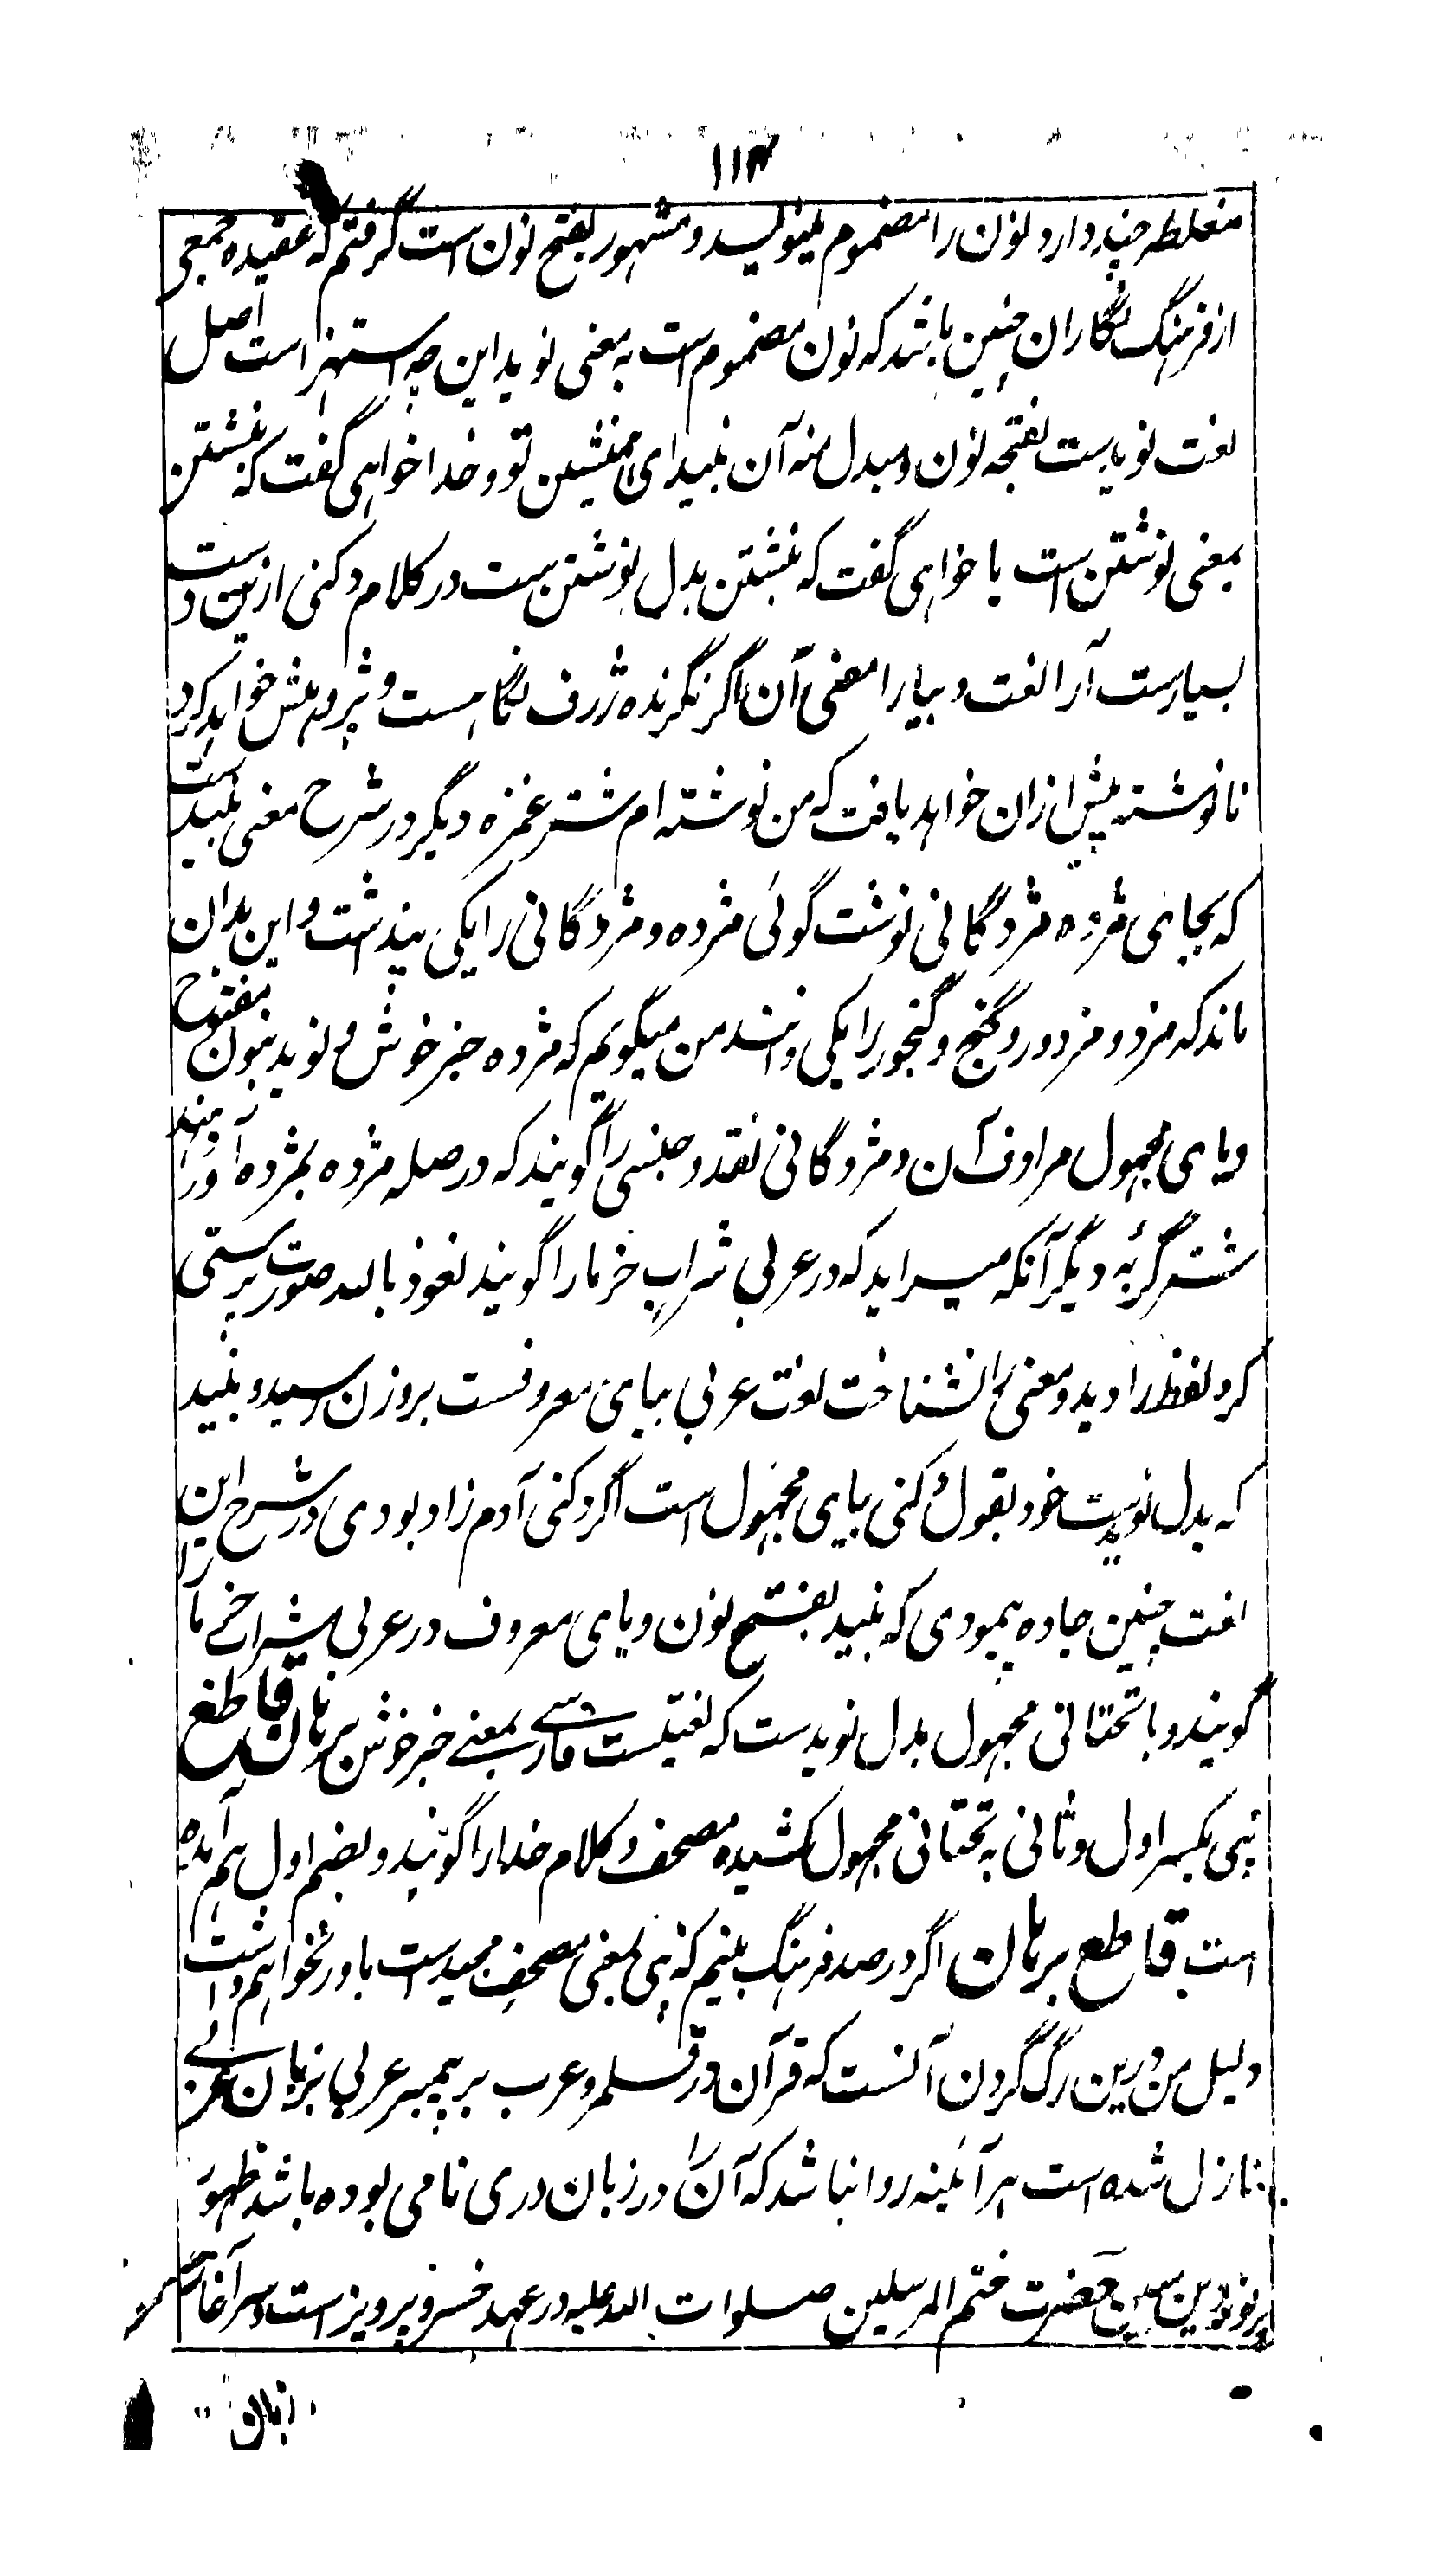 ۱۱۴
مغلطه چند دارد نون را مضموم مینویسد و مشهور بفتح نون است گرفتم که عقیده جمعی
از فرهنگ نگاران چنین باشد که نون مضموم است به معنی نوید این چه استهزا است اصل
لغت نویدست بفتحه نون و مبدل منه آن نبید ای همنشین تو و خدا خواهی گفت که نبشتن
بمعنی نوشتن است یا خواهی گفت که نبشتن بدل نوشتن ست در کلام دکنی ازین دست
بسیارست آرا لغت و بیارا معنی آن اگر نگرنده ژرف نگاهست و پژوهش خواهد کرد
نانوشته بیش ازان خواهد یافت که من نوشته ام شتر غمزه دیگر در شرح معنی نبید است
که بجای مژده مژدگانی نوشت گوئی مژده و مژدگانی را یکی پنداشت و این بدان
ماند که مزد و مزدور و گنج و گنجور را یکی دانند من میگویم که مژده خبر خوش و نوید بنون مفتوح
و یای مجهول مرادف آن و مژدگانی نقد و جنسی را گویند که در صله مژده بمژده آورد هند
شتر گربهٔ دیگر آنکه میسراید که در عربی شراب خرما را گویند نعوذ بالله صورت پرستی
کرد لفظ را دید و معنی را نشناخت لغت عربی بیای معروفست بروزن رسید و نبید
که بدل نویدست خود بقول دکنی بیای مجهول است اگر دکنی آدم زاد بودی در شرح این
لغت چنین جاده پیمودی که نبید بفتح نون و یای معروف در عربی شراب خرما را
گویند و با تحتانی مجهول بدل نویدست که لغتیست فارسی بمعنی خبر خوش برهان قاطع
نپی بکسر اول و ثانی به تحتانی مجهول کشیده مصحف و کلام خدا را گویند و بضم اول هم آمده
است قاطع برهان اگر در صد فرهنگ بینم که نپی بمعنی مصحف مجیدست باور نخواهم داشت
دلیل من درین رگ گردن آنست که قرآن در قلمرو عرب بر پیمبر عربی بزبان عربی
نازل شده است هرآئینه روا نباشد که آن را در زبان دری نامی بوده باشد ظهور
پرنور دین مبین حضرت ختم المرسلین صلوات الله علیه در عهد خسرو پرویز است و سرآغاز